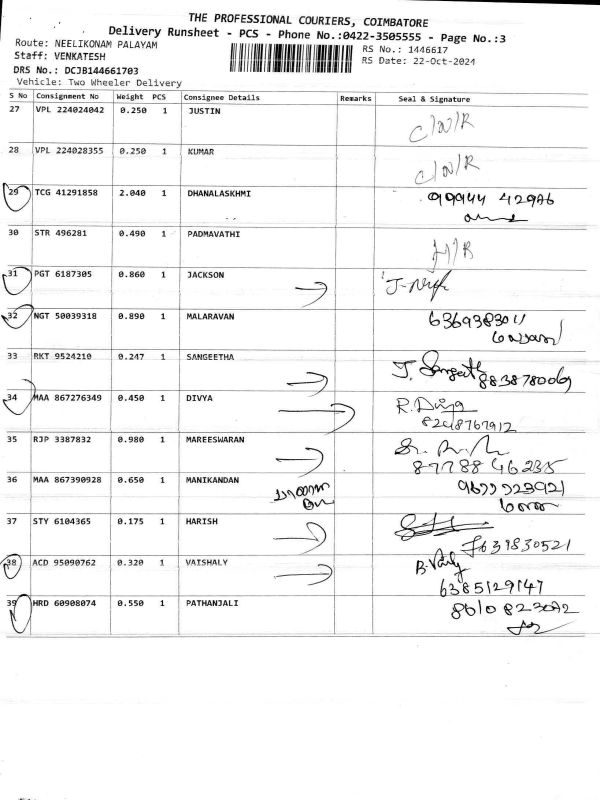 THE PROFESSIONAL COURIERS, COIMBATORE
Delivery Runsheet - PCS - Phone No.:0422-3505555 - Page No.:3
Route: NEELIKONAM PALAYAM
RS No.: 1446617
Staff: VENKATESH
RS Date: 22-Oct-2024
DRS No.: DCJB144661703
Vehicle: Two Wheeler Delivery
S No Consignment No Weight PCS Consignee Details Remarks Seal & Signature
27 VPL 224024042 0.250 1 JUSTIN C/N/R
28 VPL 224028355 0.250 1 KUMAR C/N/R
29 TCG 41291858 2.040 1 DHANALASKHMI 99944 42986
30 STR 496281 0.490 1 PADMAVATHI
31 PGT 6187305 0.860 1 JACKSON
32 NGT 50039318 0.890 1 MALARAVAN 6369383011
33 RKT 9524210 0.247 1 SANGEETHA J. Sangeeth
8838780069
34 MAA 867276349 0.450 1 DIVYA R. Divya
8248767912
35 RJP 3387832 0.980 1 MAREESWARAN
87788 46235
36 MAA 867390928 0.650 1 MANIKANDAN 9677723921
37 STY 6104365 0.175 1 HARISH
38 ACD 95090762 0.320 1 VAISHALY
6385129147
39 HRD 60908074 0.550 1 PATHANJALI